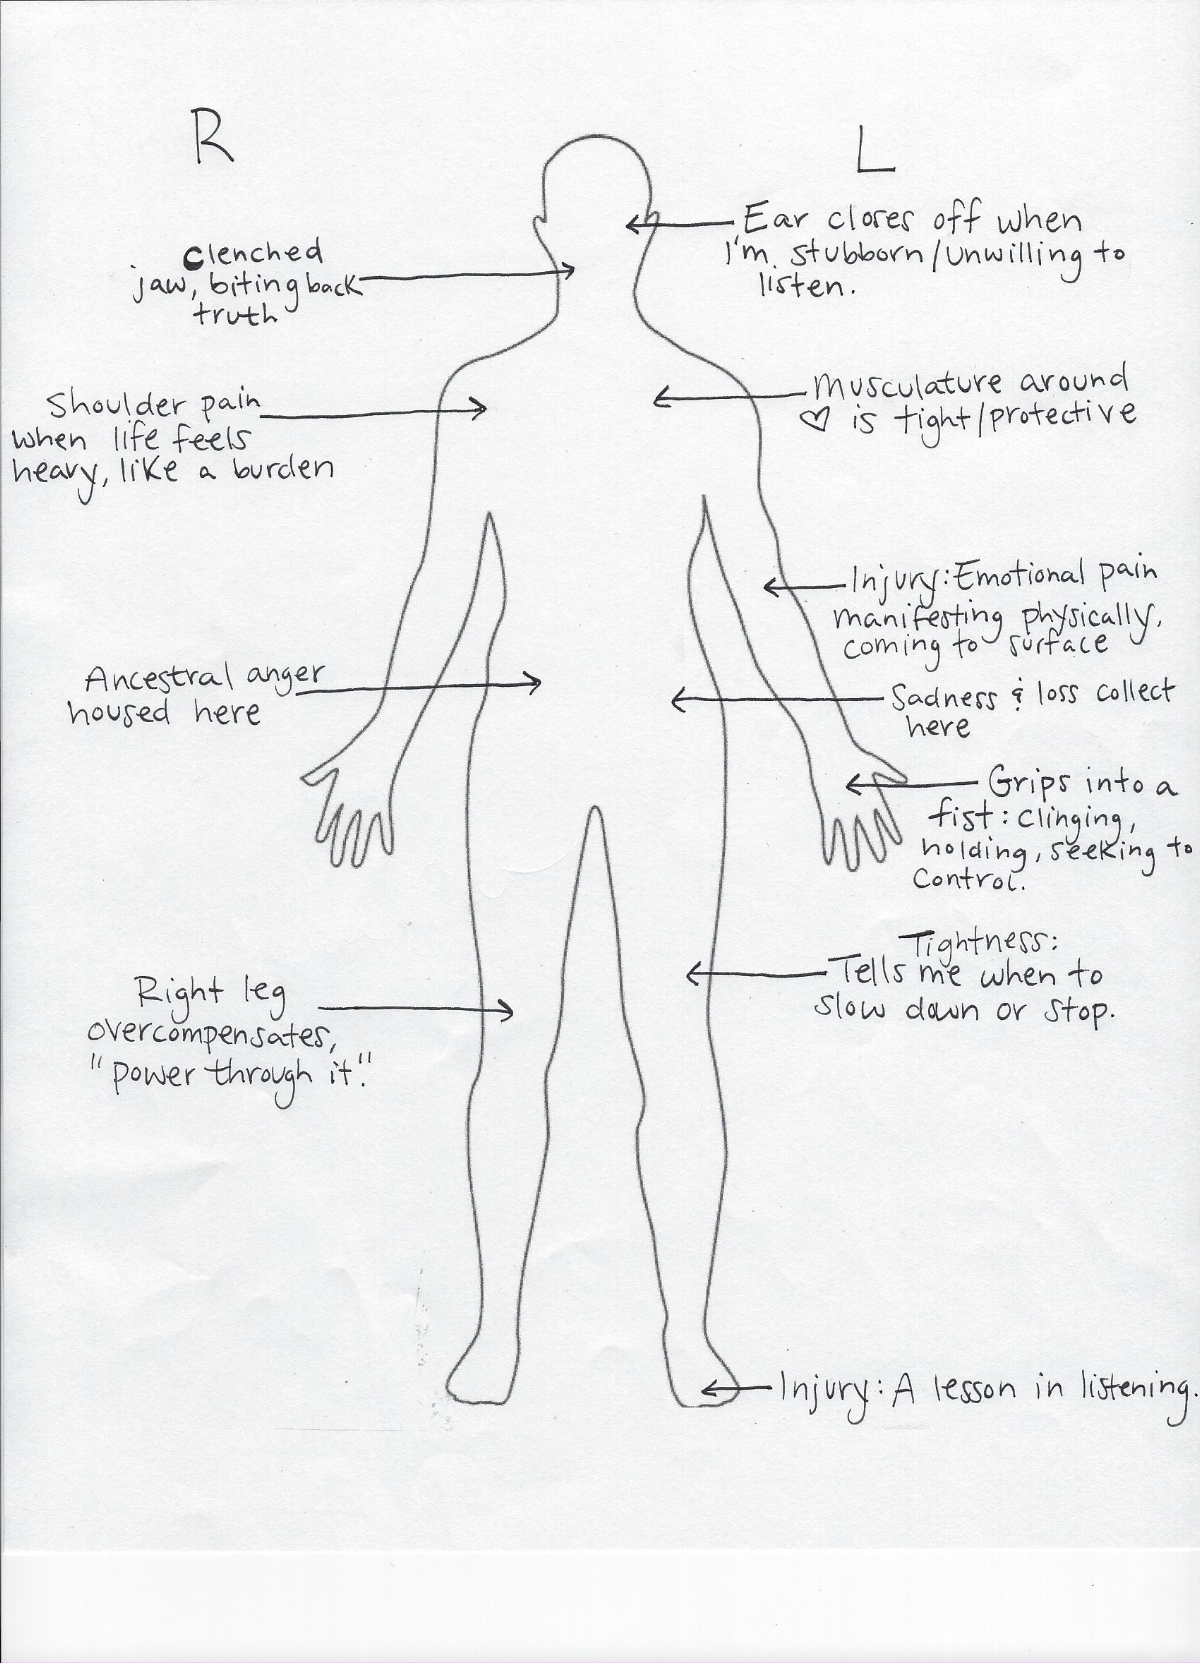 R
L
Ear closes off when
I'm stubborn/unwilling to
listen.
clenched
jaw, biting back
truth
Musculature around
♡ is tight/protective
Shoulder pain
when life feels
heavy, like a burden
Injury: Emotional pain
manifesting physically,
coming to surface
Ancestral anger
housed here
Sadness & loss collect
here
Grips into a
fist: clinging,
holding, seeking to
control.
Tightness:
Tells me when to
slow down or stop.
Right leg
overcompensates,
"power through it."
Injury: A lesson in listening.